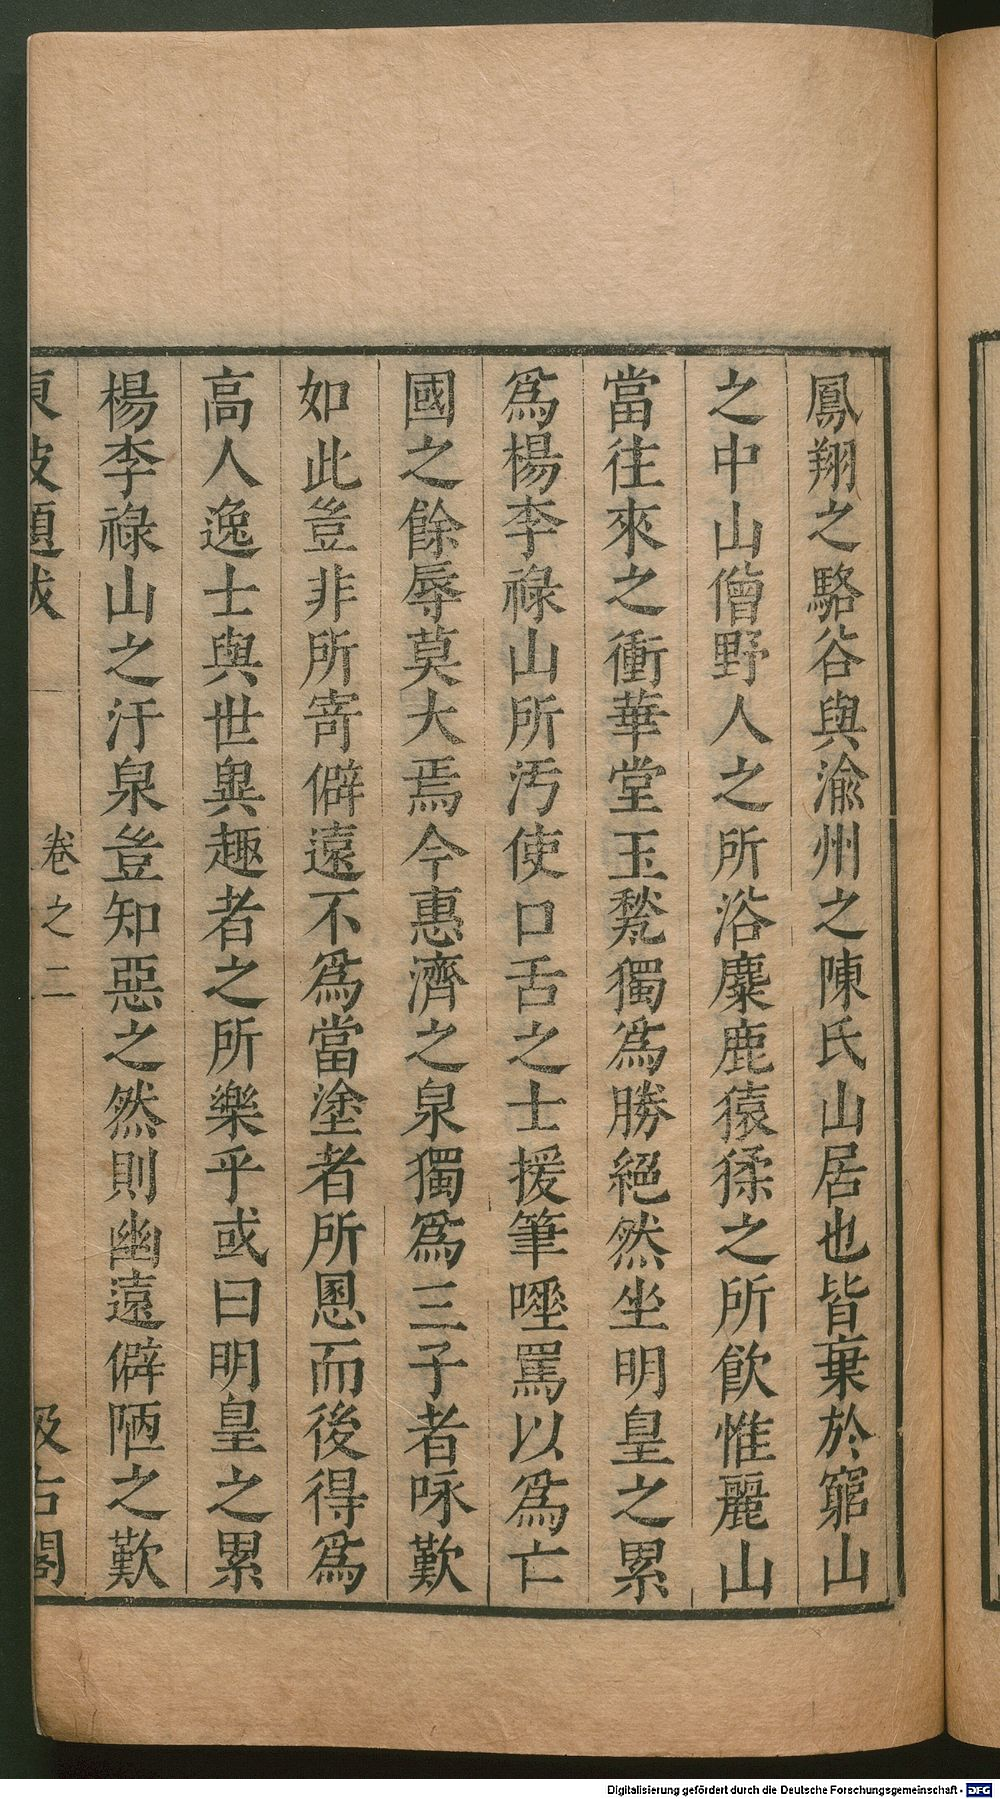 鳳翔之駱谷與渝州之陳氏山居也皆棄於窮山
之中山僧野人之所浴麋鹿猿猱之所飲惟麗山
當往來之衝華堂玉甃獨爲勝絕然坐明皇之累
爲楊李祿山所汚使口舌之士援筆唾罵以爲亡
國之餘辱莫大焉今惠濟之泉獨爲三子者咏歎
如此豈非所寄僻遠不爲當塗者所慁而後得爲
高人逸士與世異趣者之所樂乎或曰明皇之累
楊李祿山之汙泉豈知惡之然則幽遠僻陋之歎
東坡題跋
卷之二
汲古閣
Digitalisierung gefördert durch die Deutsche Forschungsgemeinschaft - DFG